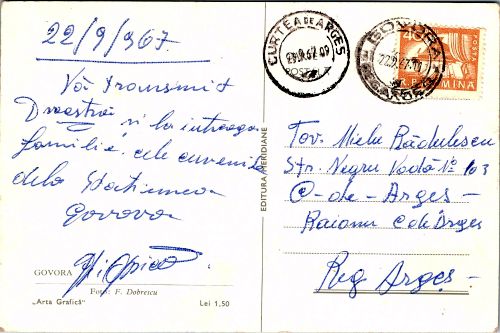 22/9/967
Vă transmit
Dvastră și la întreaga
familie, cele cuvenite
dela Stațiunea
Govora
GOVORA
Foto: F. Dobrescu
„Arta Grafică”
Lei 1,50
EDITURA MERIDIANE
CURTEA DE ARGEȘ
GOVORA
POSTA
ROMINA
Tov. Mielu Rădulescu
Str. Negru Vodă Nº 103
C-de-Argeș
Raionu C de Argeș
Reg Argeș